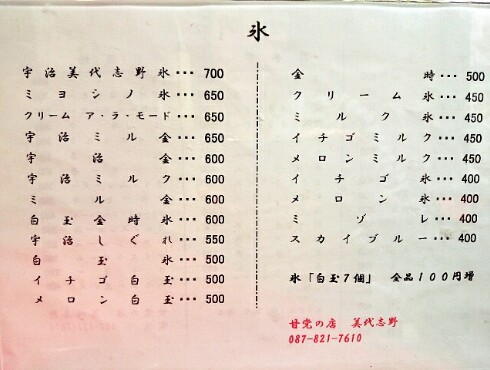 氷
宇治美代志野氷・・・700
ミヨシノ氷・・・650
クリームア・ラ・モード・・・650
宇治ミル金・・・650
宇治金・・・600
宇治ミルク・・・600
ミル金・・・600
白玉金時氷・・・600
宇治しぐれ・・・550
白玉氷・・・500
イチゴ白玉・・・500
メロン白玉・・・500
金時・・・500
クリーム氷・・・450
ミルク氷・・・450
イチゴミルク・・・450
メロンミルク・・・450
イチゴ氷・・・400
メロン氷・・・400
ミゾレ・・・400
スカイブルー・・・400
氷「白玉7個」 全品100円増
甘党の店 美代志野
087-821-7610